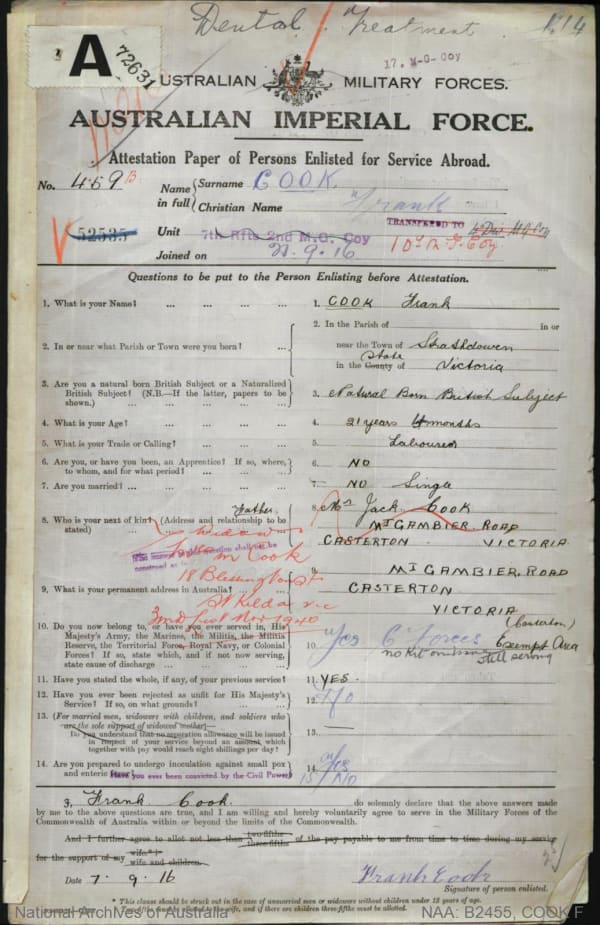 Dental Treatment
17. M-G-COY
A
72631
AUSTRALIAN MILITARY FORCES.
AUSTRALIAN IMPERIAL FORCE.
Attestation Paper of Persons Enlisted for Service Abroad.
No. 459 B
Name in full { Surname COOK
Christian Name Frank
52535
Unit 7th Rfts 2nd M.G. Coy
TRANSFERED TO
Joined on 21.9.16
Questions to be put to the Person Enlisting before Attestation.
1. What is your Name? ... ... ... ... 1. COOK Frank
2. In or near what Parish or Town were you born? ... 2. In the Parish of in or
near the Town of Strathdownen
in the County of State Victoria
3. Are you a natural born British Subject or a Naturalized British Subject? (N.B.—If the latter, papers to be shown.) ... 3. Natural Born British Subject
4. What is your Age? ... ... ... ... 4. 21 years 4 months
5. What is your Trade or Calling? ... ... ... 5. Labourer
6. Are you, or have you been, an Apprentice? If so, where, to whom, and for what period? ... ... 6. NO
7. Are you married? ... ... ... ... 7. NO Single
8. Who is your next of kin? (Address and relationship to be stated) Father 8. Mr Jack Cook
MT GAMBIER ROAD
CASTERTON VICTORIA
widow
M Cook
18 Blessington St
St Kilda Vic
9. What is your permanent address in Australia? 9. MT GAMBIER, ROAD
CASTERTON
VICTORIA
Nov 1940
10. Do you now belong to, or have you ever served in, His Majesty's Army, the Marines, the Militia, the Militia Reserve, the Territorial Force, Royal Navy, or Colonial Forces? If so, state which, and if not now serving, state cause of discharge 10. Yes C. Forces (Casterton)
Exempt Area
still serving
11. Have you stated the whole, if any, of your previous service? 11. YES.
12. Have you ever been rejected as unfit for His Majesty's Service? If so, on what grounds? 12. No
13. (For married men, widowers with children, and soldiers who are the sole support of widowed mother)—
Do you understand that no separation allowance will be issued in respect of your service beyond an amount which together with pay would reach eight shillings per day? 13. —
14. Are you prepared to undergo inoculation against small pox and enteric 14. Yes
Have you ever been convicted by the Civil Power? 15 No
I, Frank Cook. do solemnly declare that the above answers made
by me to the above questions are true, and I am willing and hereby voluntarily agree to serve in the Military Forces of the
Commonwealth of Australia within or beyond the limits of the Commonwealth.
And I further agree to allot not less than two-fifths three-fifths of the pay payable to me from time to time during my service
for the support of my wife* wife and children.
Date 7.9.16 Frank Cook
Signature of person enlisted.
* This clause should be struck out in the case of unmarried men or widowers without children under 18 years of age.
National Archives of Australia NAA: B2455, COOK F